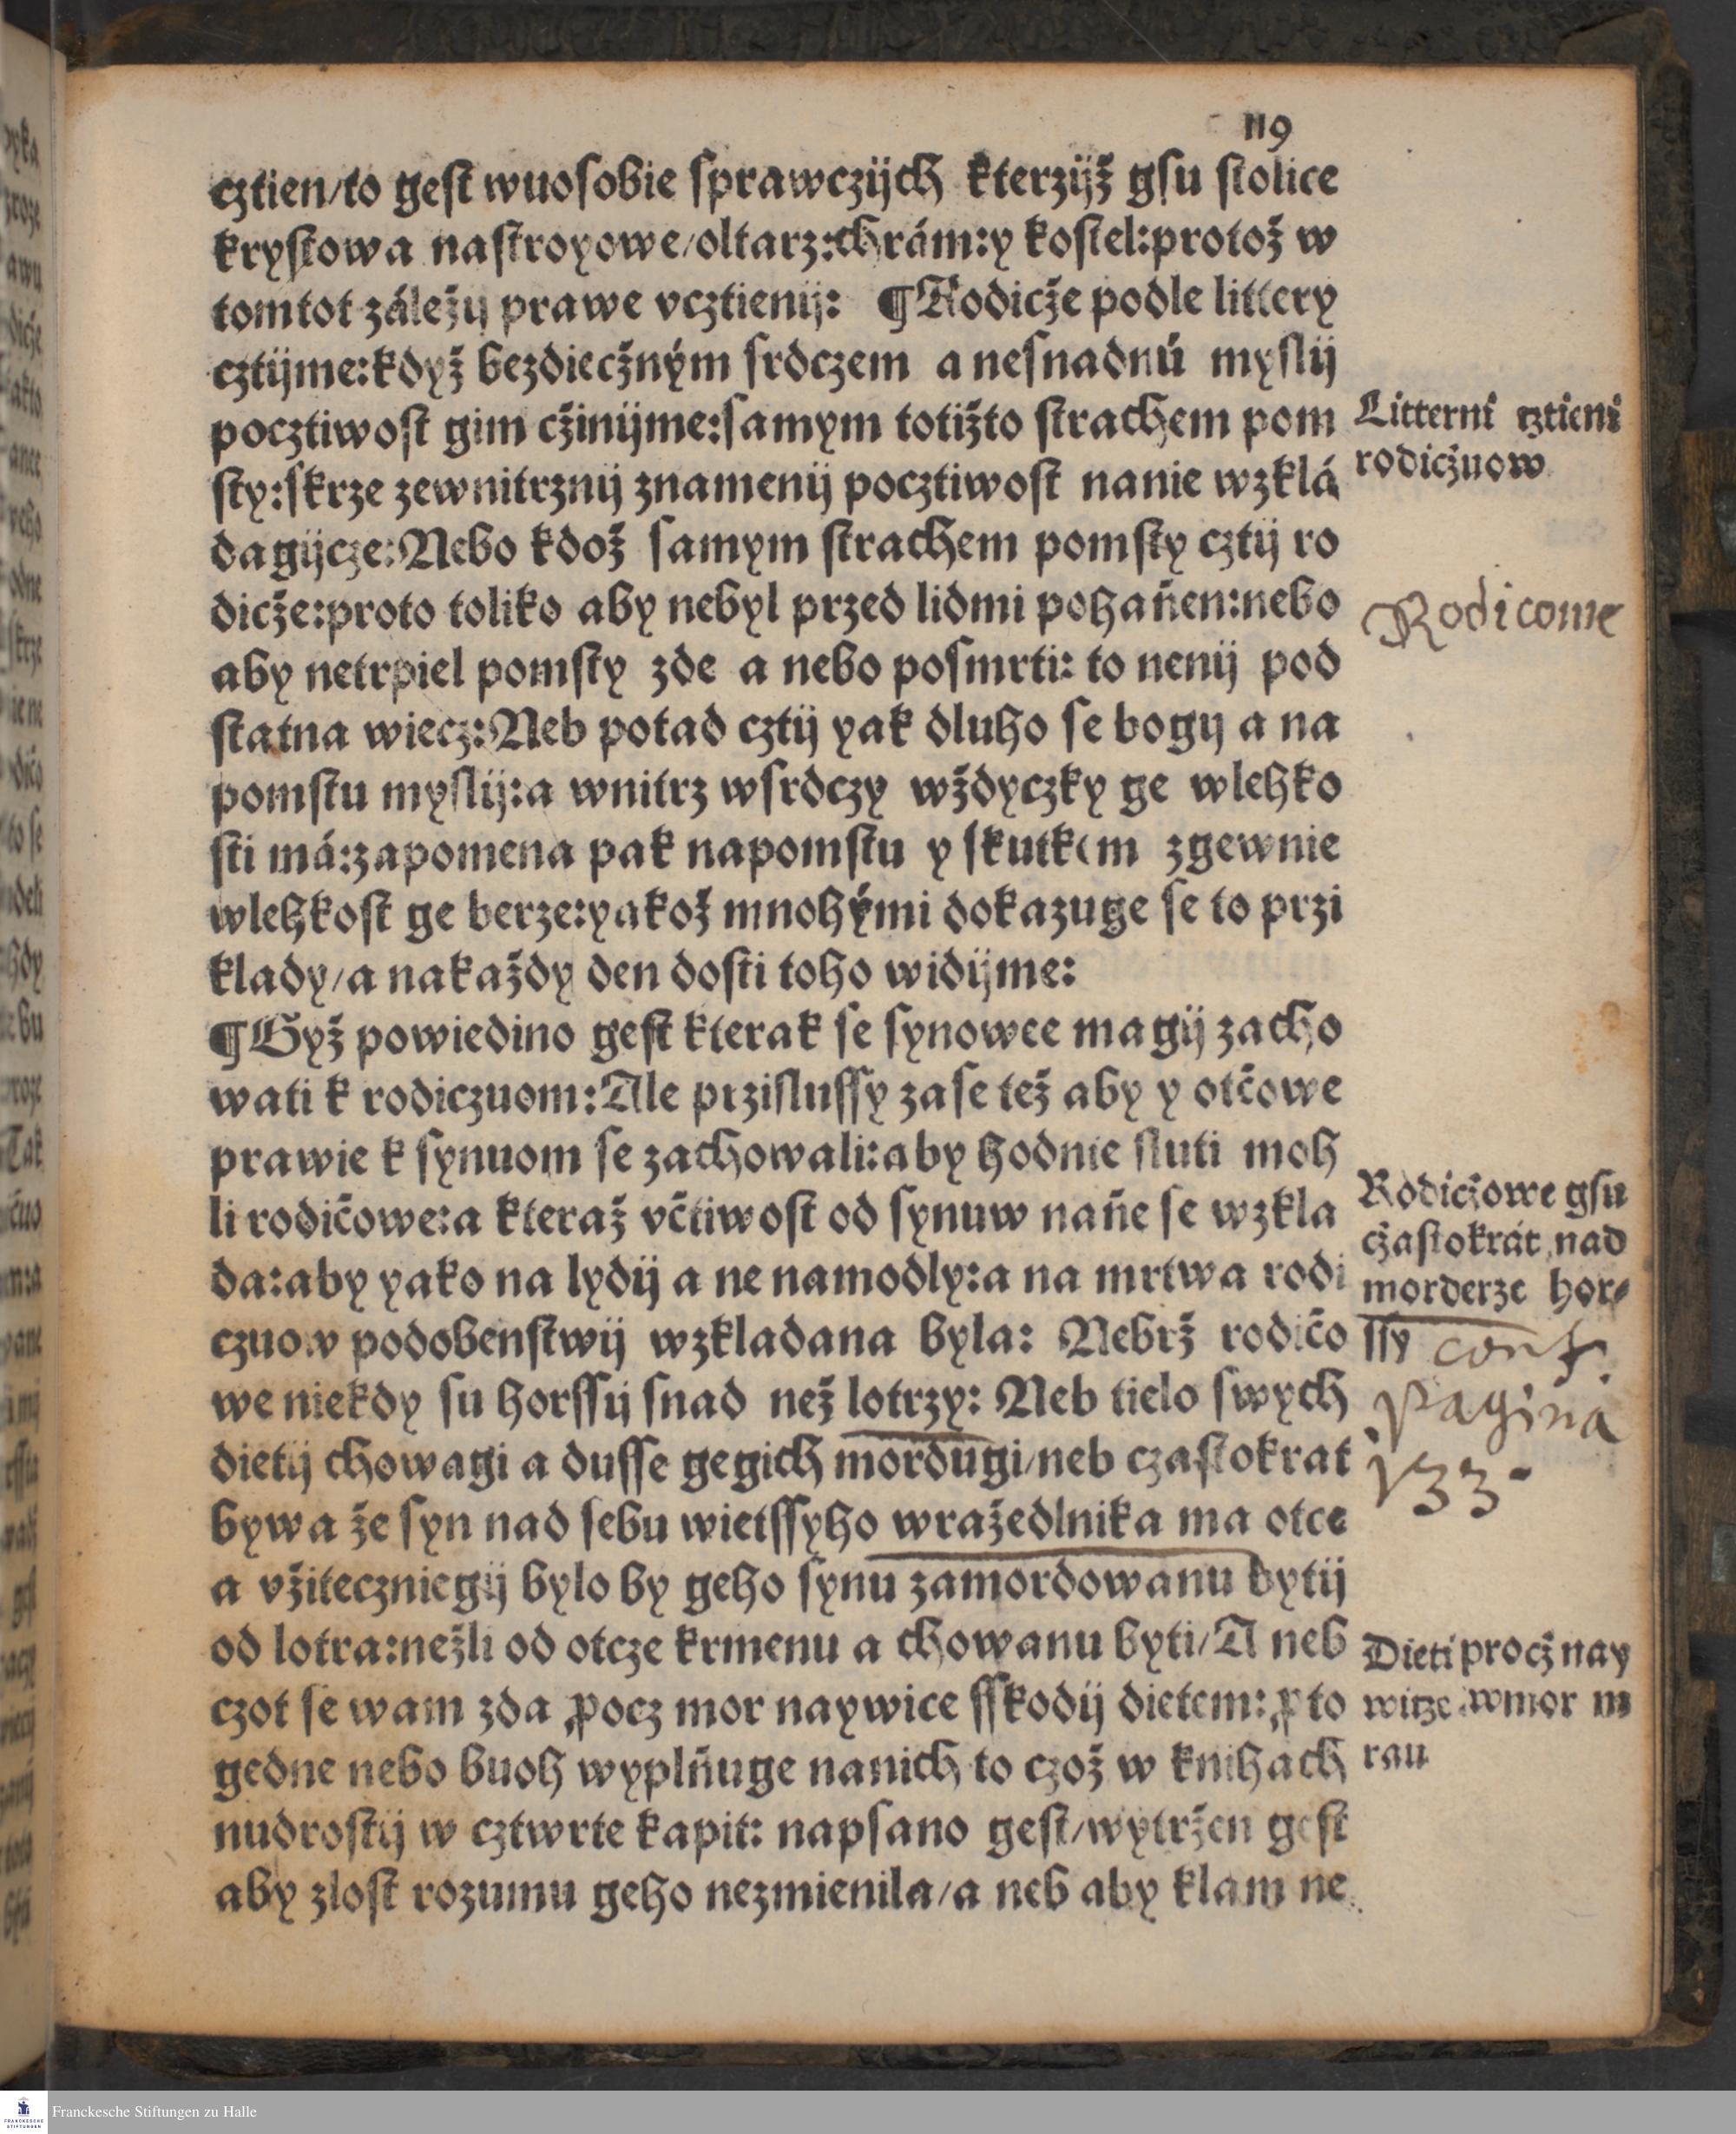 119
cztien/to gest wuosobie sprawczijch kterzijž gsu stolice
krystowa nastroyowe/oltarz:chrám:y kostel:protož w
tomtot záležij prawe vcztienij: ¶Rodicže podle littery
cztijme:když bezdiecžným srdczem a nesnadnú myslij
pocztiwost gim cžinijme:samym totižto strachem pom
sty:skrze zewnitrznij znamenij pocztiwost nanie wzklá
dagijcze:Nebo kdož samym strachem pomsty cztij ro
dicže:proto toliko aby nebyl przed lidmi pohañen:nebo
aby netrpiel pomsty zde a nebo posmrti: to nenij pod
statna wiecz:Neb potad cztij yak dluho se bogij a na
pomstu myslij:a wnitrz wsrdczy wždyczky ge wlehko
sti má:zapomena pak napomstu y skutkem zgewnie
wlehkost ge berze:yakož mnohými dokazuge se to przi
klady/a nakaždy den dosti toho widijme:
¶Gyž powiedino gest kterak se synowee magij zacho
wati k rodiczuom:Ale przislussy zase tež aby y otčowe
prawie k synuom se zachowali:aby hodnie sluti moh
li rodičowe:a kteraž včtiwost od synuw nañe se wzkla
da:aby yako na lydij a ne namodly:a na mrtwa rodi
czuow podobenstwij wzkladana byla: Nebrž rodičo
we niekdy su horssij snad než lotrzy: Neb tielo swych
dietij chowagi a dusse gegich mordugi/neb czastokrat
bywa že syn nad sebu wietssyho wražedlnika ma otce
a vžiteczniegij bylo by geho synu zamordowanu bytij
od lotra:nežli od otcze krmenu a chowanu byti/A neb
czot se wam zda ꝓocz mor naywice sskodij dietem:ꝓto
gedne nebo buoh wyplñuge nanich to czož w knihach
nudrostij w cztwrte kapit: napsano gest/wytržen gest
aby zlost rozumu geho nezmienila/a neb aby klam ne
Litterni cztieni
rodicžuow
Rodicome
Rodicžowe gsu
cžastokrát nad
morderze hor⸗
ssy conf.
pagina
133.
Dieti procž nay
witze wmor m
rau
Franckesche Stiftungen zu Halle